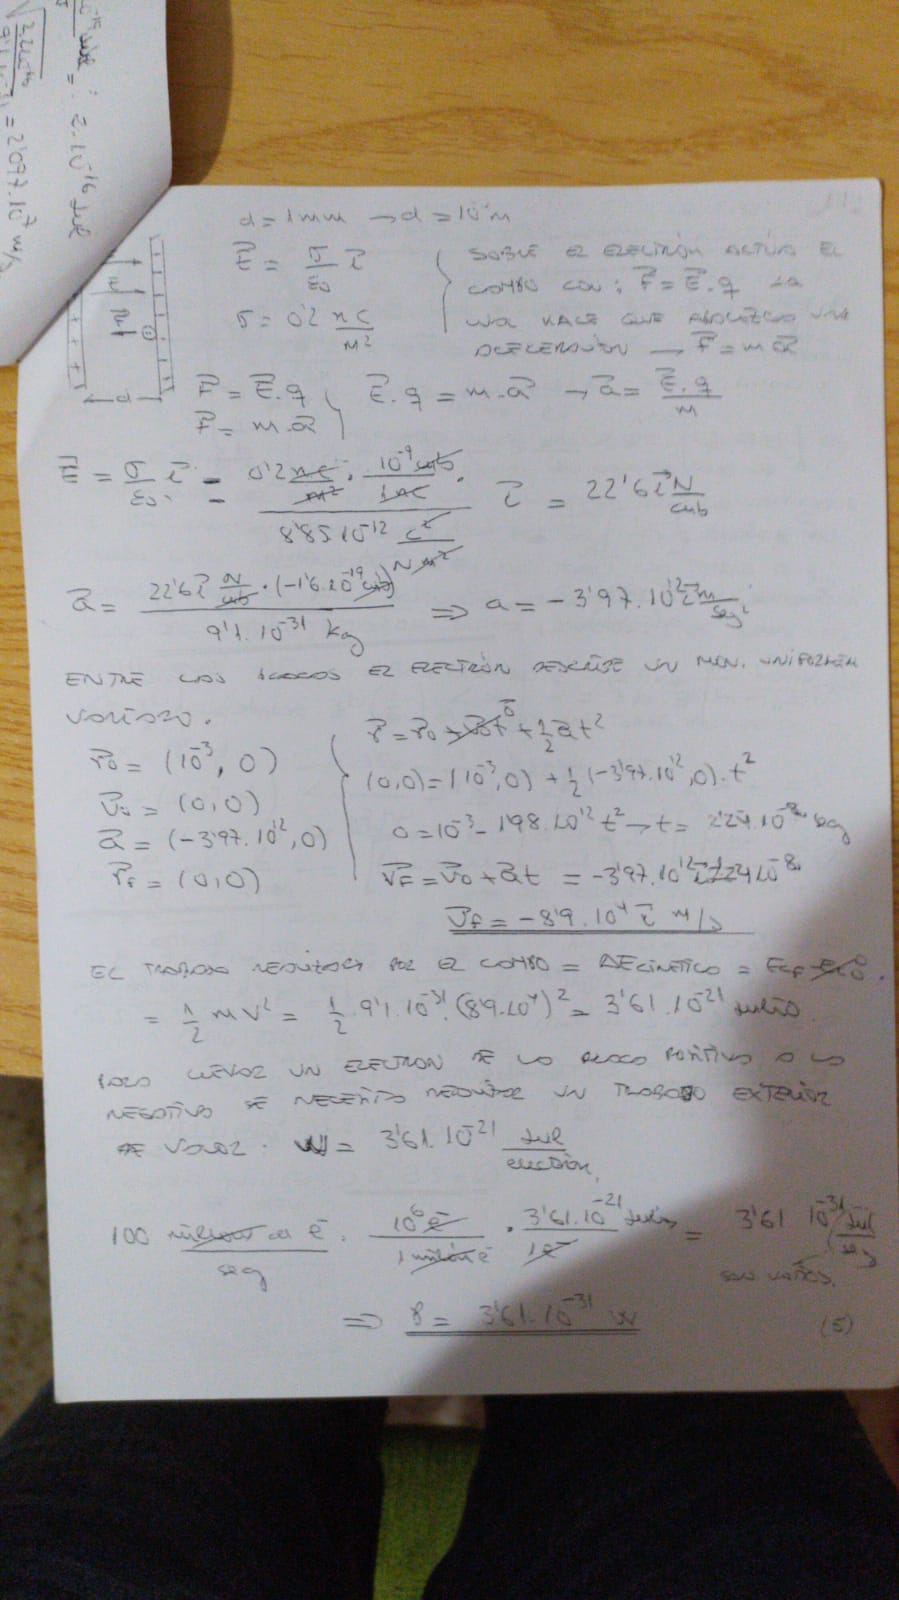 10⁻¹⁹ = 2.10⁻¹⁶ Jul
√ 9'1.10⁻³¹ = 2'097.10⁷ m/s
d = 1mm → d = 10⁻³m
E⃗ = σ/ε₀ i⃗
SOBRE EL ELECTRÓN ACTÚA EL
CAMPO CON: F⃗ = E⃗.q LA
σ = 0'2 nC/m²
CUAL HACE QUE ADQUIERA UNA
ACELERACIÓN → F⃗ = m a⃗
F⃗ = E⃗.q
F⃗ = m.a⃗
E⃗.q = m.a⃗ → a⃗ = E⃗.q/m
E⃗ = σ/ε₀ i⃗ = 0'2 nC/m² . 10⁻⁹ cub/1nC / 8'85 10⁻¹² C²/N m² i⃗ = 22'6 i⃗ N/cub
a⃗ = 22'6 i⃗ N/cub . (-1'6.10⁻¹⁹ cub) / 9'1.10⁻³¹ kg ⇒ a = -3'97.10¹² i⃗ m/seg²
ENTRE LAS PLACAS EL ELECTRÓN DESCRIBE UN MOV. UNIFORMEM
VARIADO.
r⃗ = r⃗₀ + v⃗₀t + 1/2 a⃗t²
r⃗₀ = (10⁻³, 0)
(0,0) = (10⁻³,0) + 1/2 (-3'97.10¹²,0).t²
v⃗₀ = (0,0)
0 = 10⁻³ - 1'98.10¹² t² → t = 2'24.10⁻⁸ seg
a⃗ = (-3'97.10¹², 0)
v⃗F = v⃗₀ + a⃗t = -3'97.10¹² i⃗ 2'24.10⁻⁸
r⃗F = (0,0)
v⃗F = -8'9.10⁴ i⃗ m/s
EL TRABAJO REALIZADO POR EL CAMPO = ΔECINÉTICA = EcF - Ec0.
= 1/2 mv² = 1/2 9'1.10⁻³¹.(8'9.10⁴)² = 3'61.10⁻²¹ Julio.
PARA LLEVAR UN ELECTRON DE LA PLACA POSITIVA A LA
NEGATIVA SE NECESITA REALIZAR UN TRABAJO EXTERIOR
DE VALOR. W = 3'61.10⁻²¹ Jul/electrón,
100 millones de e⁻/seg . 10⁶ e⁻/1 millón e⁻ . 3'61.10⁻²¹ Julios/1e⁻ = 3'61 10⁻³¹ Jul/seg
SON VATIOS.
⇒ P = 3'61.10⁻³¹ W
(5)